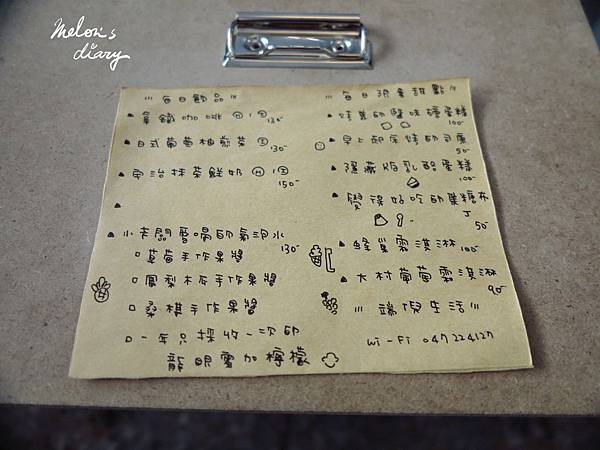 melon's
diary
〃 每日飲品 〃
拿鐵咖啡 Ⓗ Ⓘ 130-
日式葡萄柚煎茶 Ⓘ 130-
宇治抹茶鮮奶 Ⓗ Ⓘ 150-
小老闆愛喝的氣泡水 130-
口草莓手作果醬
口鳳梨木瓜手作果醬
口桑椹手作果醬
口一年只採收一次的
龍眼蜜加檸檬
〃 每日限量甜點 〃
蛋糕 100-
早上起床烤的司康 50-
隱藏版乳酪蛋糕 100-
覺得好吃的黑糖布丁 50-
蜂巢霜淇淋 100-
大村葡萄霜淇淋 90-
〃 端倪生活 〃
Wi-Fi 047224127